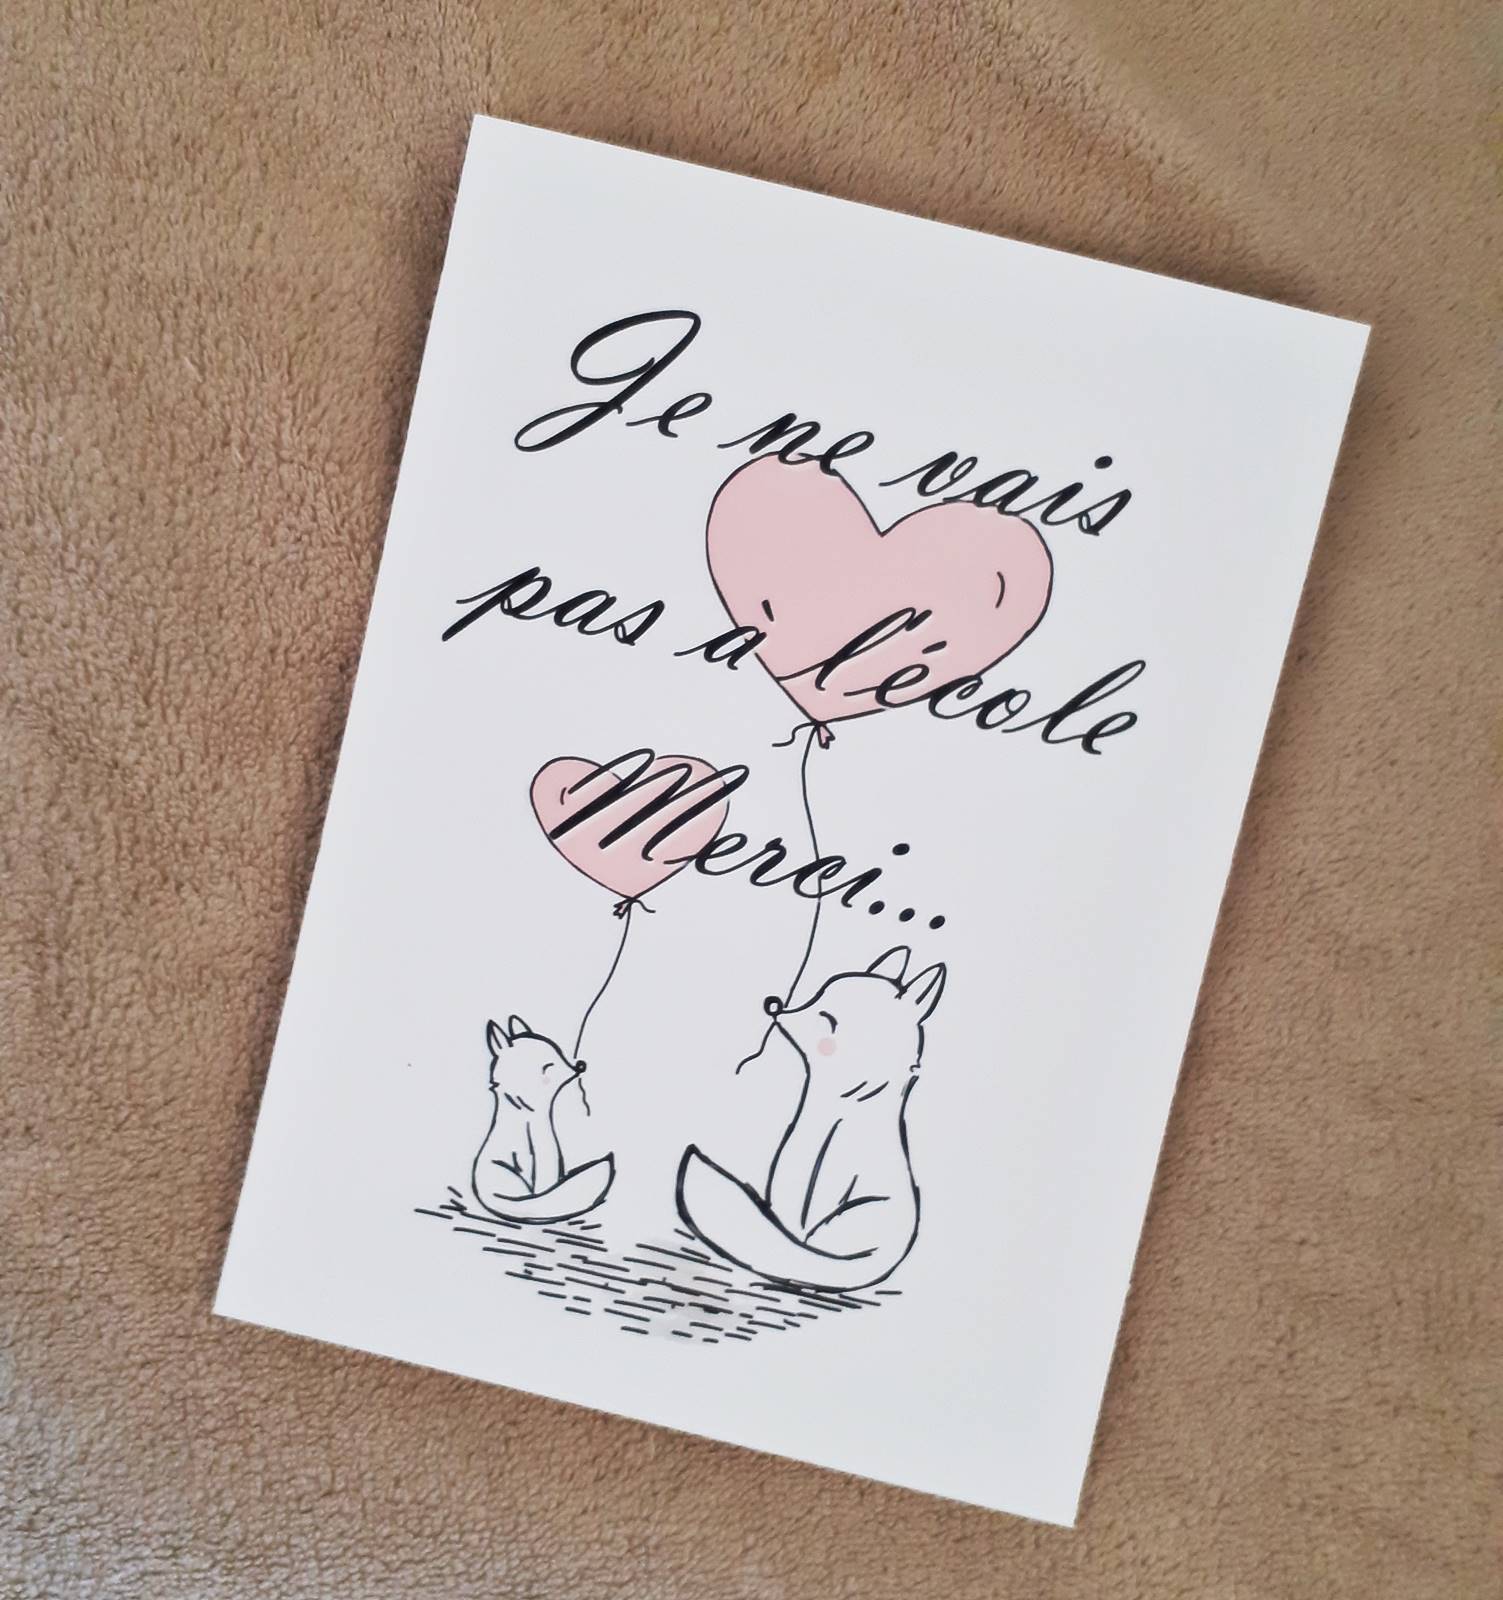 Je ne vais
pas à l'école
Merci...